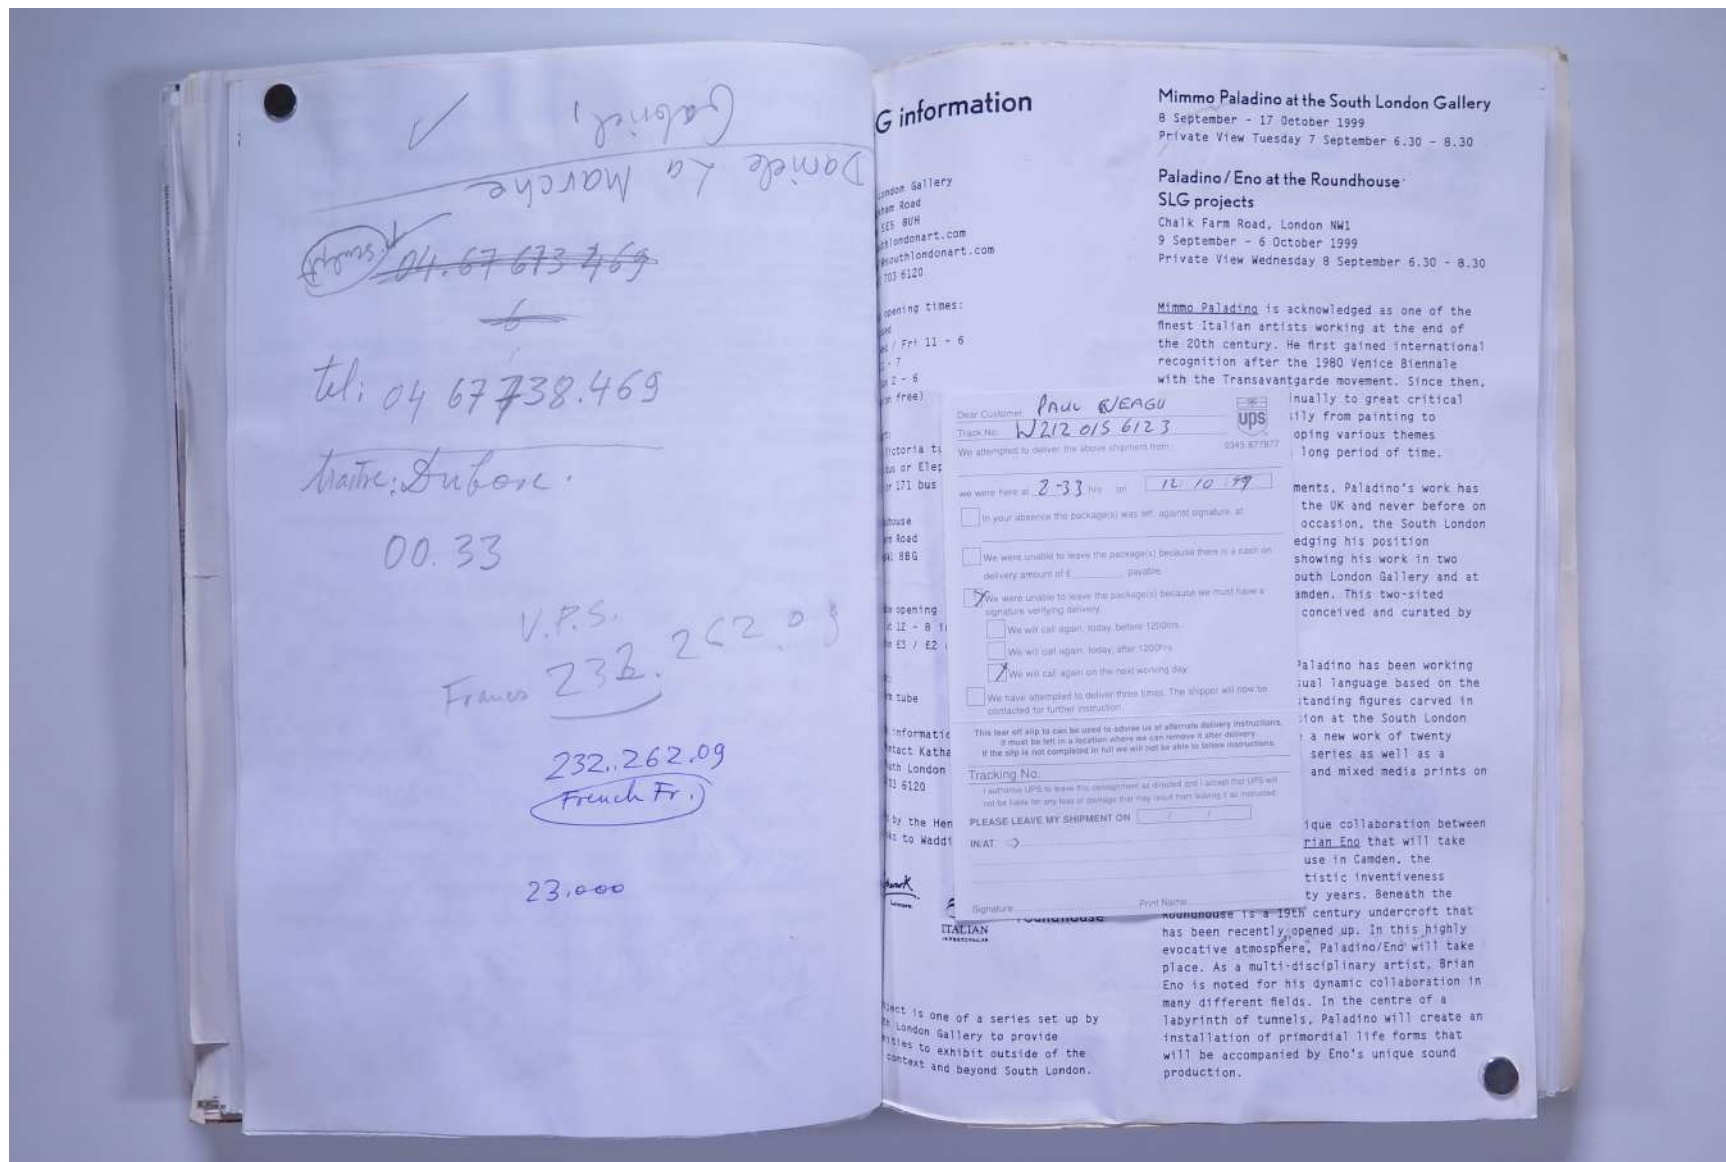 Gabriel,
Daniele La Marche
04.67 673 469
6
tel: 04 67 738.469
traître: Dubosc.
00.33
V.P.S.
Francs 232.262.09
232.262.09
French Fr.
23.000
G information
London Gallery
ham Road
SE5 8UH
thlondonart.com
@southlondonart.com
703 6120
opening times:
/ Fri 11 - 6
- 7
2 - 6
free)
ictoria tu
or Elep
r 171 bus
house
Road
8BG
opening
12 - 8
£3 / £2
tube
informatio
ntact Katha
th London
03 6120
by the Hen
ks to Waddi
ITALIAN
ject is one of a series set up by
London Gallery to provide
nities to exhibit outside of the
context and beyond South London.
Mimmo Paladino at the South London Gallery
8 September - 17 October 1999
Private View Tuesday 7 September 6.30 - 8.30
Paladino/Eno at the Roundhouse
SLG projects
Chalk Farm Road, London NW1
9 September - 6 October 1999
Private View Wednesday 8 September 6.30 - 8.30
Mimmo Paladino is acknowledged as one of the
finest Italian artists working at the end of
the 20th century. He first gained international
recognition after the 1980 Venice Biennale
with the Transavantgarde movement. Since then,
inually to great critical
ily from painting to
oping various themes
long period of time.
ments, Paladino's work has
the UK and never before on
occasion, the South London
edging his position
showing his work in two
outh London Gallery and at
amden. This two-sited
conceived and curated by
Paladino has been working
sual language based on the
standing figures carved in
ion at the South London
a new work of twenty
series as well as a
and mixed media prints on
ique collaboration between
rian Eno that will take
use in Camden, the
tistic inventiveness
ty years. Beneath the
Roundhouse is a 19th century undercroft that
has been recently opened up. In this highly
evocative atmosphere, Paladino/Eno will take
place. As a multi-disciplinary artist, Brian
Eno is noted for his dynamic collaboration in
many different fields. In the centre of a
labyrinth of tunnels, Paladino will create an
installation of primordial life forms that
will be accompanied by Eno's unique sound
production.
Dear Customer PAUL NEAGU
ups
Track No: W212 015 6123
0345 877877
We attempted to deliver the above shipment from:
we were here at 2-33 hrs on 12 10 99
In your absence the package(s) was left, against signature, at:
We were unable to leave the package(s) because there is a cash on
delivery amount of £ payable.
We were unable to leave the package(s) because we must have a
signature verifying delivery.
We will call again, today, before 1200hrs.
We will call again, today, after 1200hrs.
We will call again on the next working day.
We have attempted to deliver three times. The shipper will now be
contacted for further instruction.
This tear off slip can be used to advise us of alternate delivery instructions.
It must be left in a location where we can remove it after delivery.
If the slip is not completed in full we will not be able to follow instructions.
Tracking No.
I authorise UPS to leave this consignment as directed and I accept that UPS will
not be liable for any loss or damage that may result from leaving it as instructed.
PLEASE LEAVE MY SHIPMENT ON / /
IN/AT
Signature Print Name